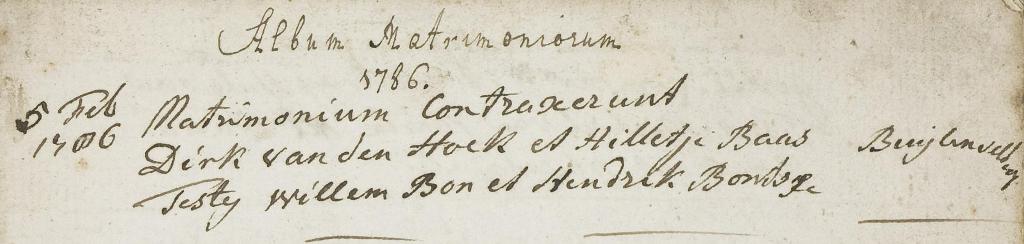 Album Matrimoniorum
1786.
5 Feb
1786
Matrimonium Contraxerunt
Dirk van den Hoek et Hilletje Baas
Testy willem Bon et Hendrik